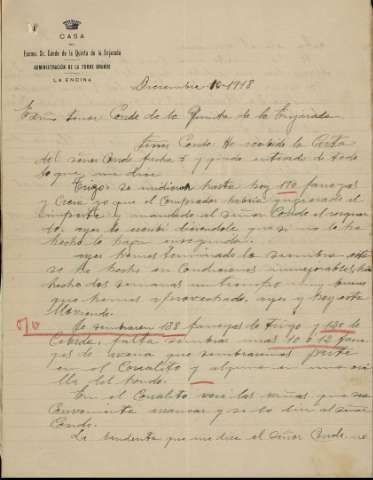 CASA
DEL
Excmo. Sr. Conde de la Quinta de la Enjarada
ADMINISTRACIÓN DE LA TORRE GRANDE
LA ENCINA
Diciembre 10-1918
Exmo señor Conde de la Quinta de la Enjarada
Señor Conde He recibido la Carta
del señor Conde fecha y quedo enterado de todo
lo que me dice
Trigo se midieron hasta hoy 110 fanegas
y Creo yo que el Comprador habrá ingresado el
importe y mandado al señor Conde el resguar
do, ayer le escribí diciéndole que si no lo ha
hecho lo haga enseguida.
ayer hemos terminado la siembra esta
se ha hecho en Condiciones inmejorables, ha
hecho dos semanas un tiempo muy bueno
que hemos aprovechado, ayer y hoy esta
lloviendo.
Se sembraron 138 fanegas de Trigo y 130 de
Cebada, falta sembrar unas 10 o 12 fane
gas de avena que sembraremos parte
en el Corralito y alguna en una
lla del
En el Corralito veré las viñas que sea
Conveniente arrancar y se lo diré al señor
Conde.
La que me dice el señor Conde no